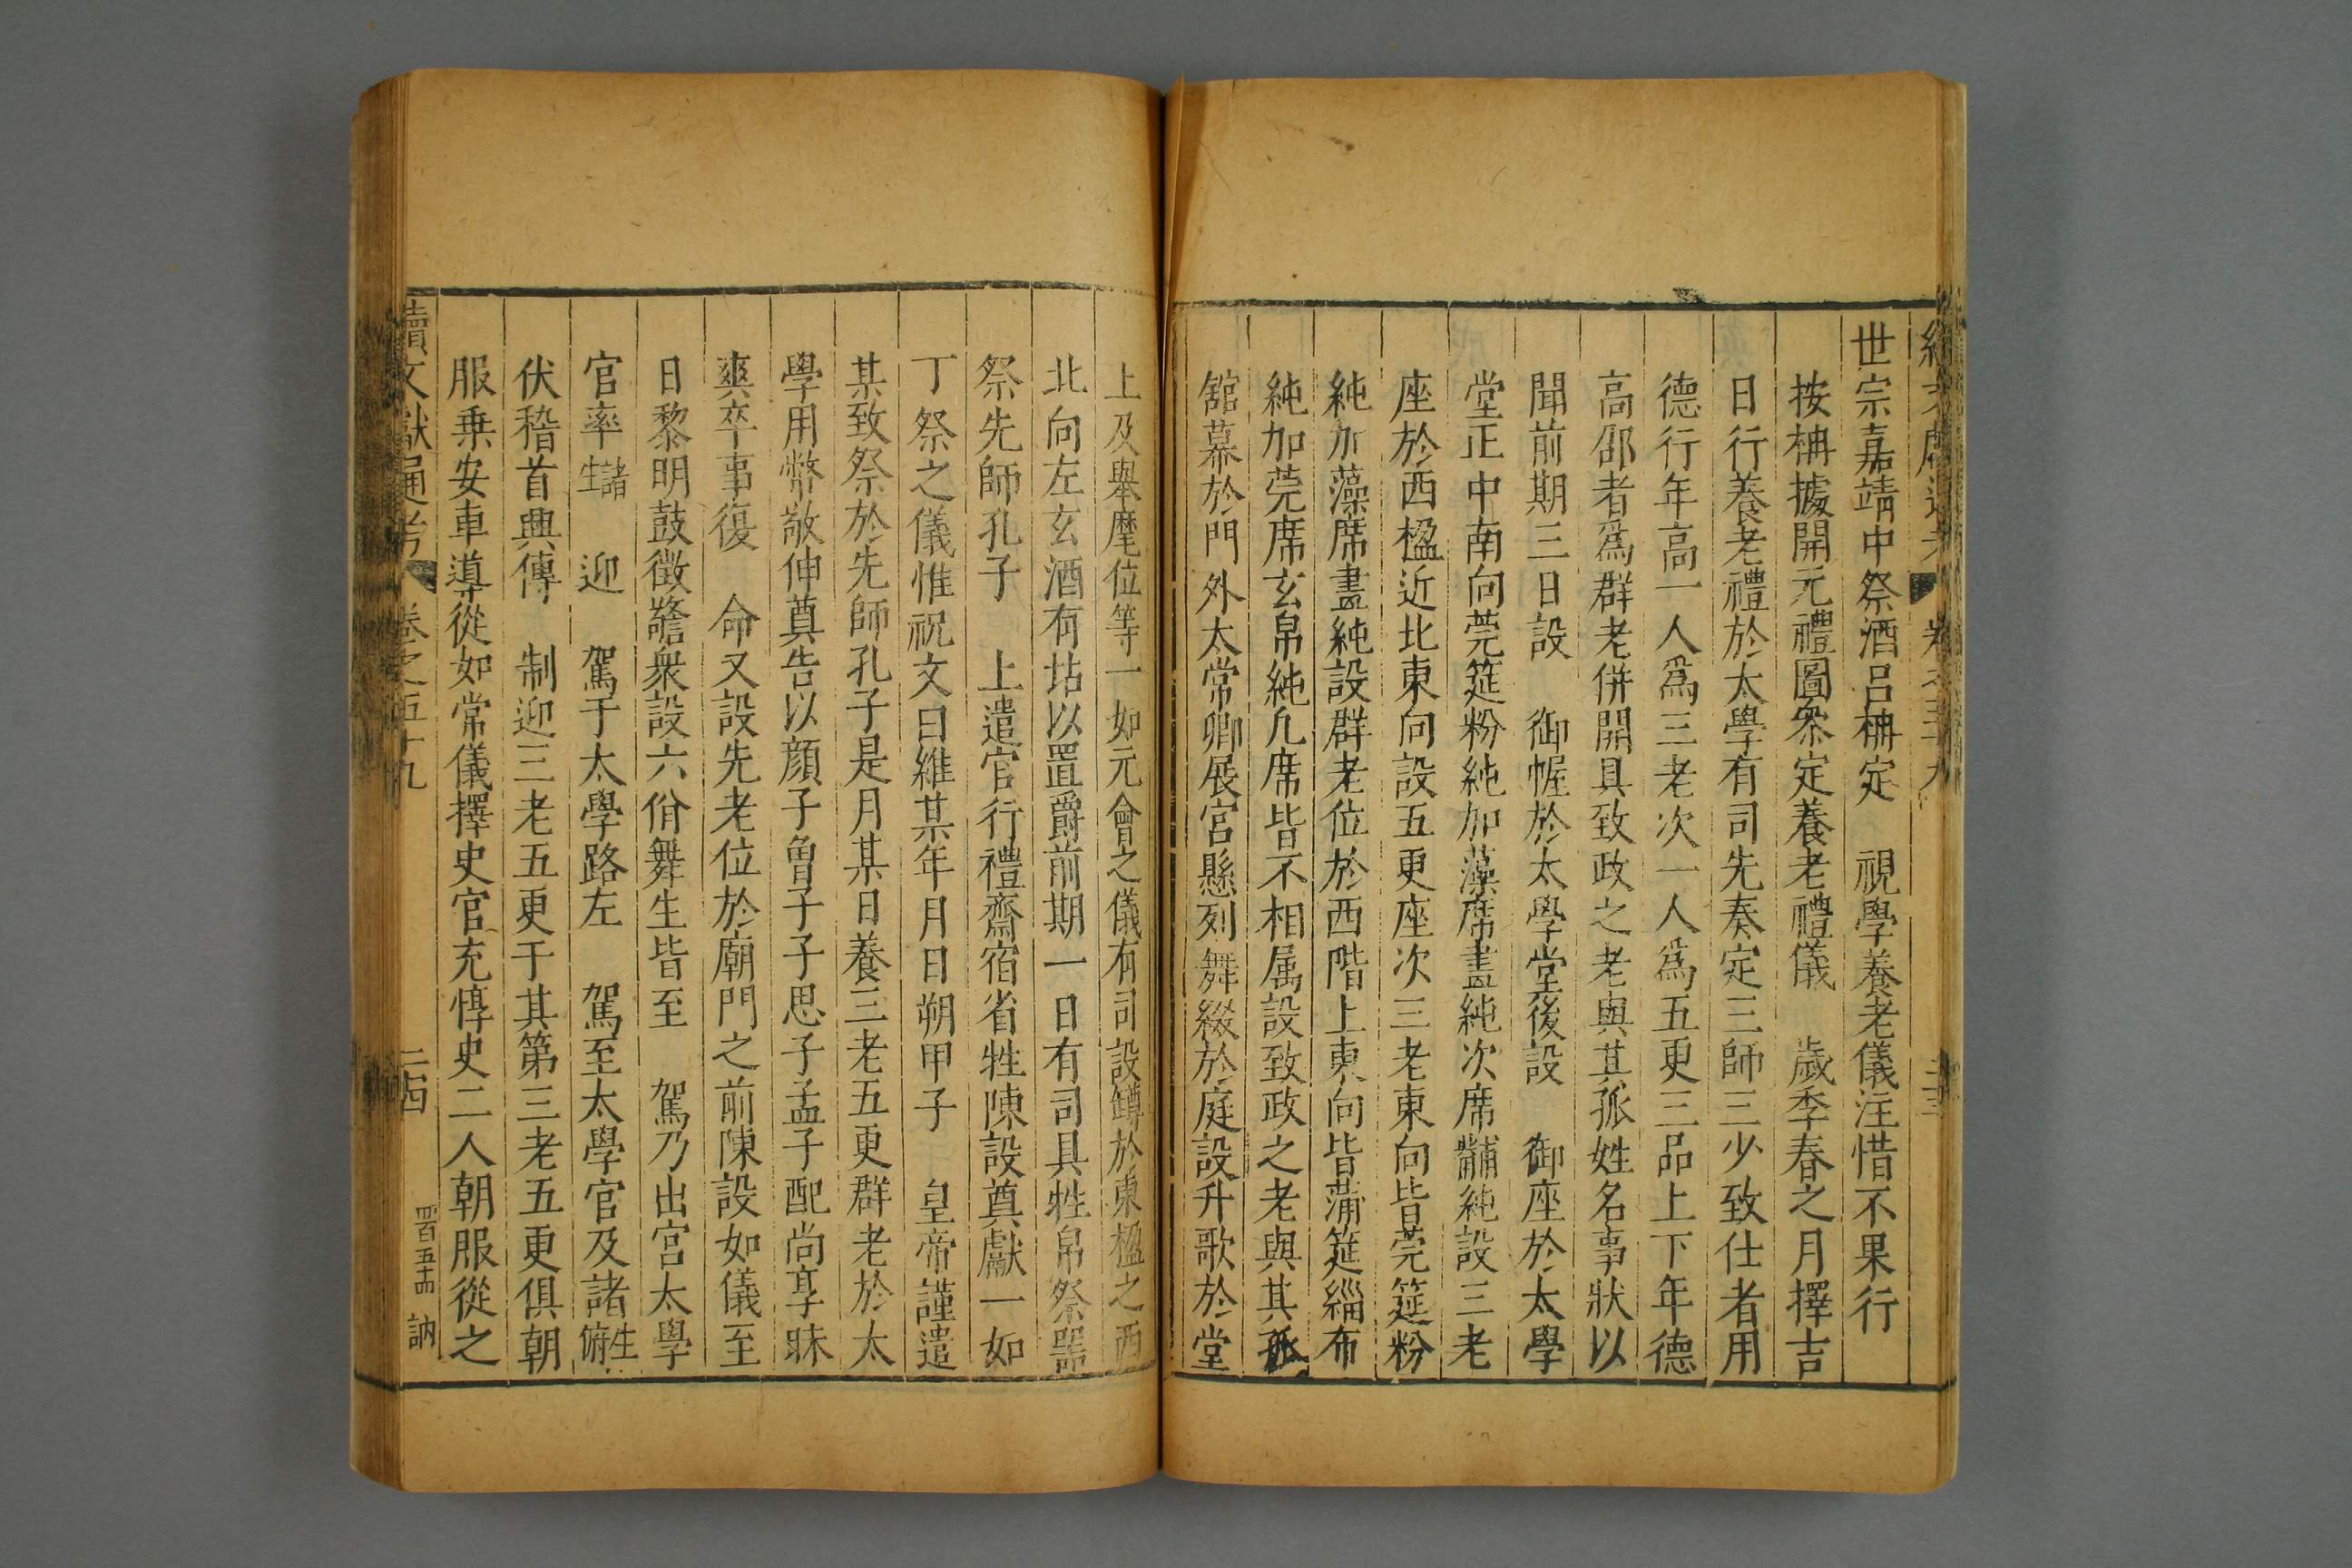 世宗嘉靖中祭酒呂柟定　視學養老儀注惜不果行
按柟據開元禮圖叅定養老禮儀　歲季春之月擇吉
日行養老禮於太學有司先奏定三師三少致仕者用
德行年高一人爲三老次一人爲五更三品上下年德
高邵者爲群老併開具致政之老與其孤姓名事狀以
聞前期三日設　御幄於太學堂後設　御座於太學
堂正中南向莞筵粉純加藻席畫純次席黼純設三老
座於西楹近北東向設五更座次三老東向皆莞筵粉
純加藻席畫純設群老位於西階上東向皆蒲筵緇布
純加莞席玄帛純凡席皆不相属設致政之老與其孤
舘幕於門外太常卿展宮懸列舞綴於庭設升歌於堂
上及舉麾位等一如元會之儀有司設罇於東楹之西
北向左玄酒有坫以置爵前期一日有司具牲帛祭器
祭先師孔子　上遣官行禮齋宿省牲陳設奠獻一如
丁祭之儀惟祝文曰維某年月日朔甲子　皇帝謹遣
某致祭於先師孔子是月某日養三老五更群老於太
學用幣敬伸奠告以顔子曾子子思子孟子配尚享昧
爽卒事復　命又設先老位於廟門之前陳設如儀至
日黎明鼓徵警衆設六佾舞生皆至　駕乃出宮太學
官率諸生　迎　駕于太學路左　駕至太學官及諸生俯
伏稽首興傳　制迎三老五更于其第三老五更俱朝
服乗安車導從如常儀擇史官充惇史二人朝服從之
續文獻通考　卷之五十九　二四　四百五十四　訥